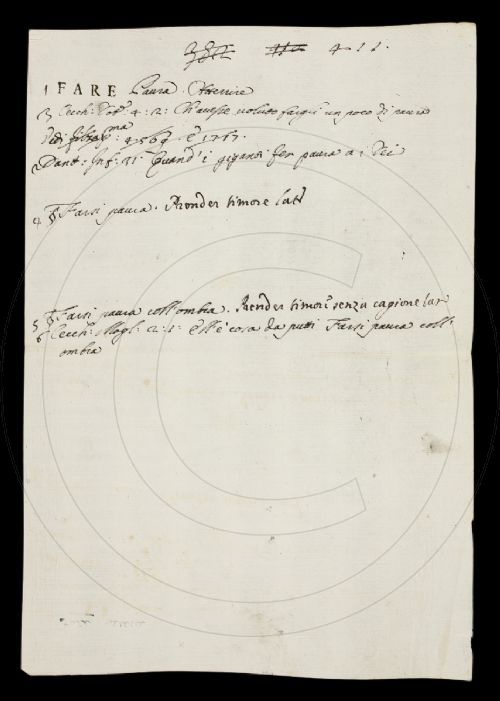 411.
1 FARE Paura. Atterrire
3 Cecch: Dot: 4: 2: Ch'avesse voluto fargli un poco di paura
Vedi 4569. e 1717.
2 Dant: Inf: 31: Quand' i giganti fer paura a i Dei
4 § Farsi paura. Prender timore lat
5 § Farsi paura coll'ombra. Prender timore senza cagione lat
6 Cecch: Mogl: 2: 1: Ell'è cosa da putti Farsi paura coll'
ombra